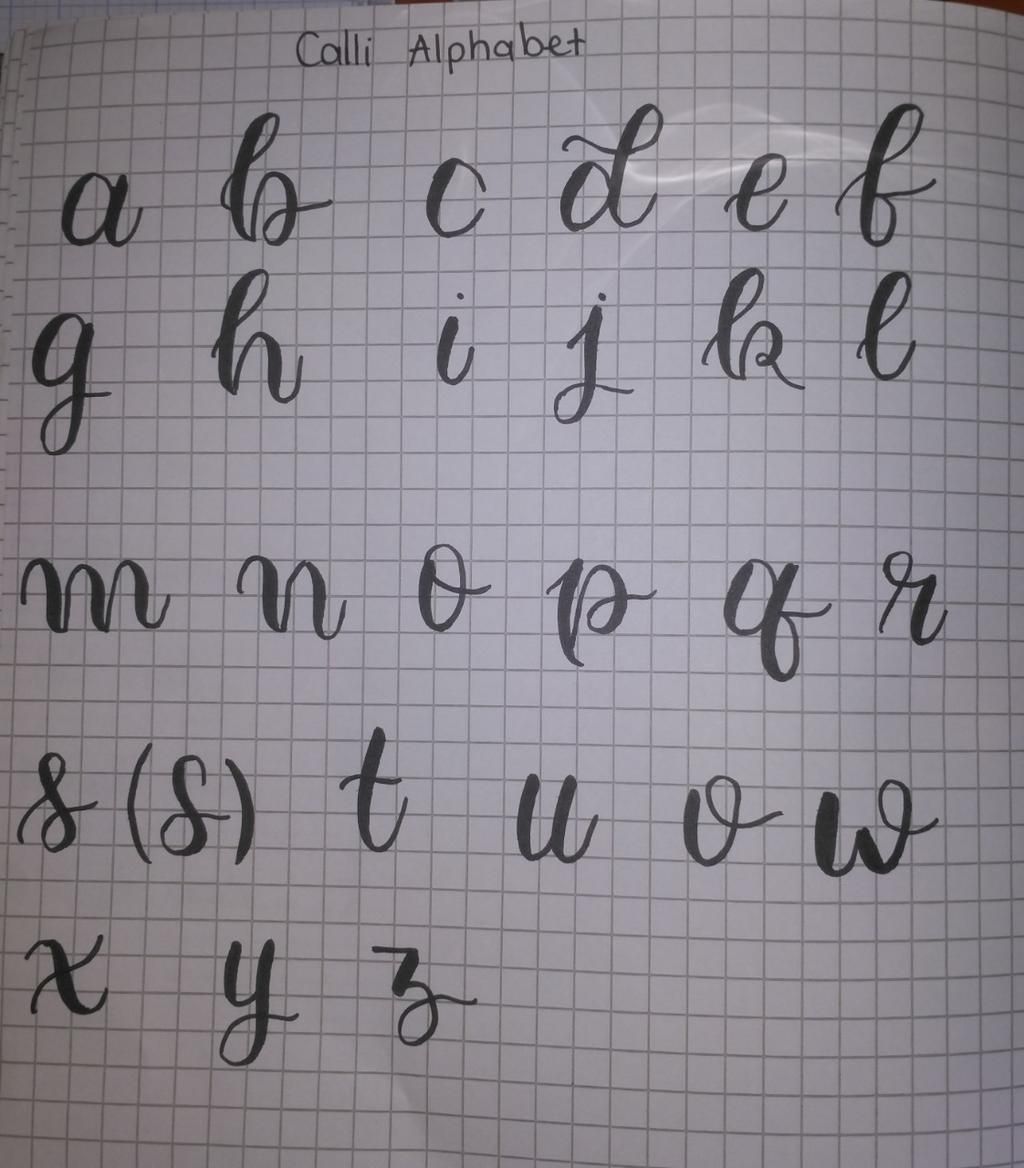 Calli Alphabet
a b c d e f
g h i j k l
m n o p q r
s (s) t u v w
x y z